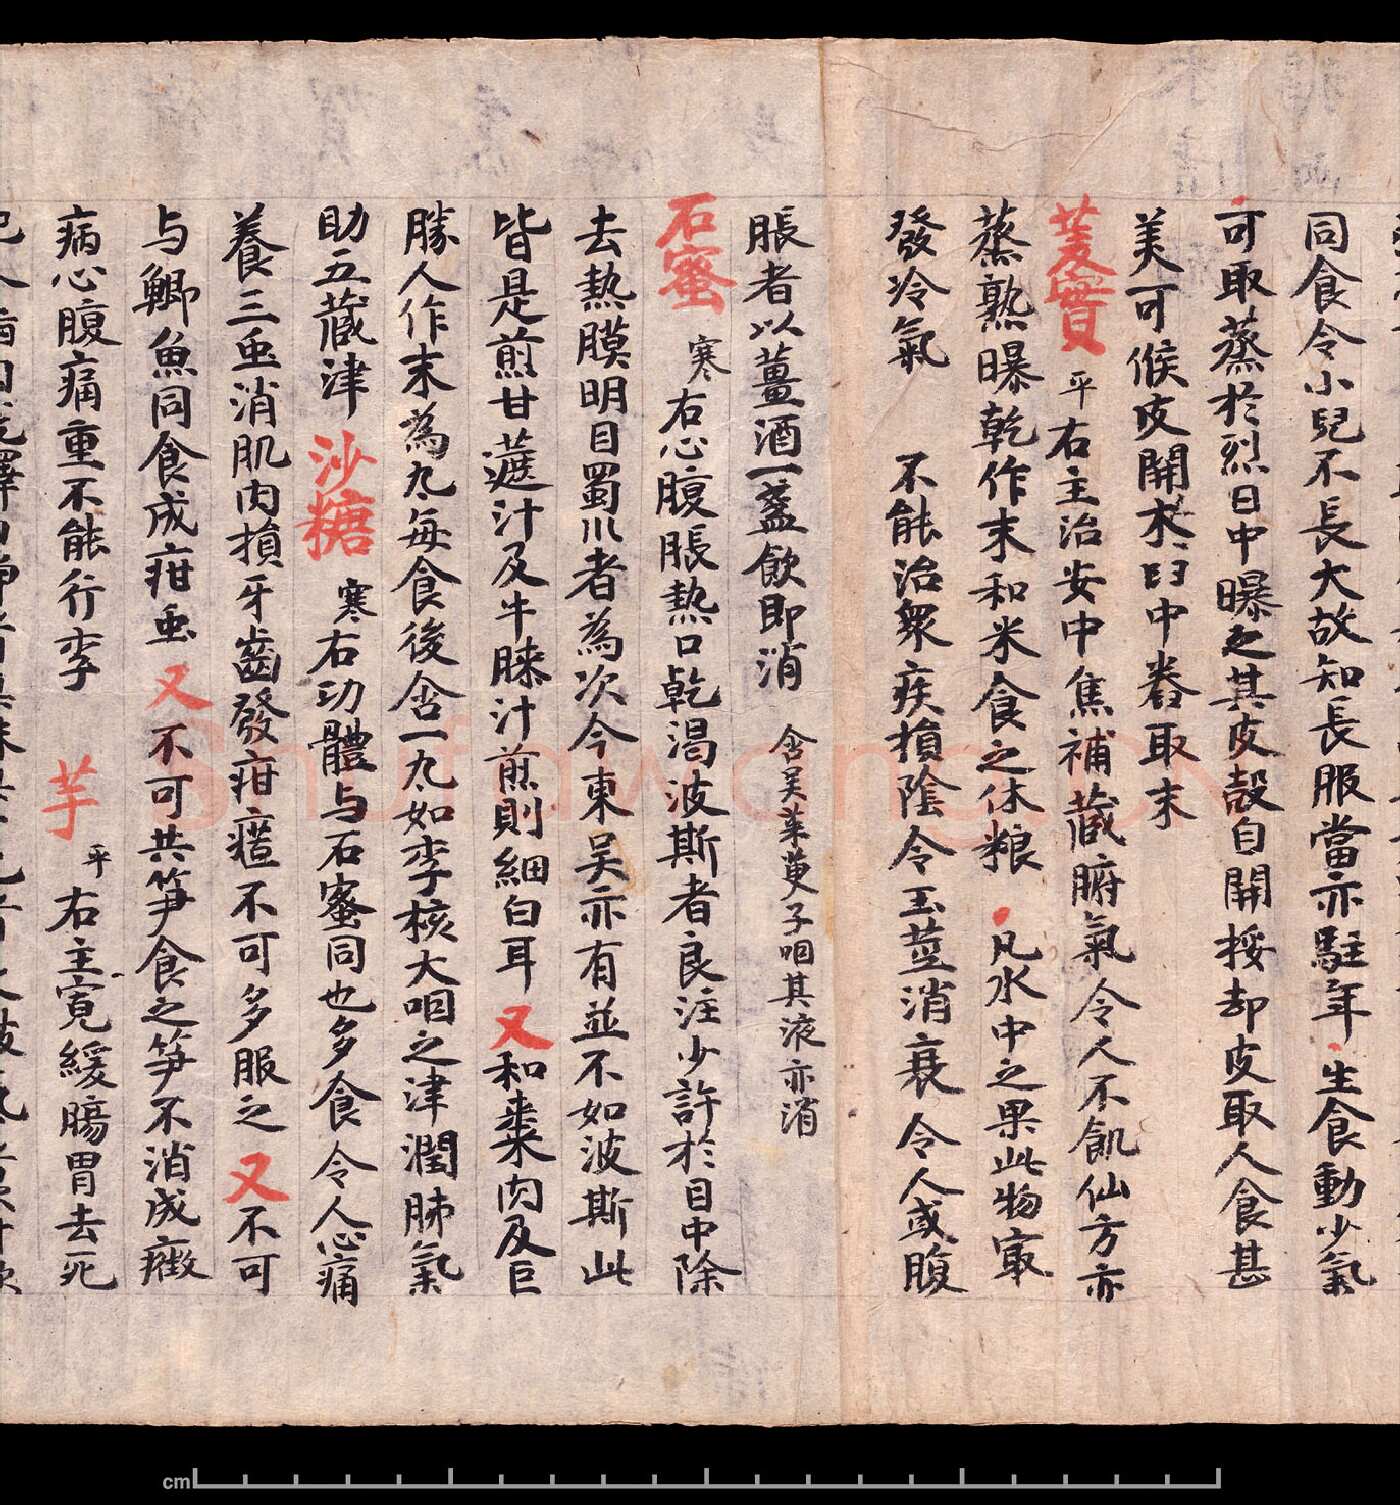 同食令小兒不長大故知長服當亦駐年生食動少氣
可取蒸於烈日中曝之其皮殼自開挼却皮取人食甚
美可候皮開木臼中舂取末
菱實 平 右主治安中焦補蔵腑氣令人不飢仙方亦
蒸熟曝乾作末和米食之休粮 凡水中之果此物寂
發冷氣 不能治衆疾損陰令玉莖消衰令人或腹
脹者以薑酒一盞飲即消 含吴茱萸子咽其液亦消
石蜜 寒 右心腹脹熱口乾渴波斯者良注少許於目中除
去熱膜明目蜀川者為次今東吴亦有並不如波斯此
皆是煎甘蔗汁及牛膝汁煎則細白耳 又和棗肉及巨
勝人作末為丸每食後含一丸如李核大咽之津潤肺氣
助五蔵津 沙糖 寒 右功體与石蜜同也多食令人心痛
養三虫消肌肉損牙齒發疳䘌不可多服之 又不可
与鯽魚同食成疳虫 又不可共笋食之笋不消成癥
病心腹痛重不能行李 芋 平 右主寬緩腸胃去死